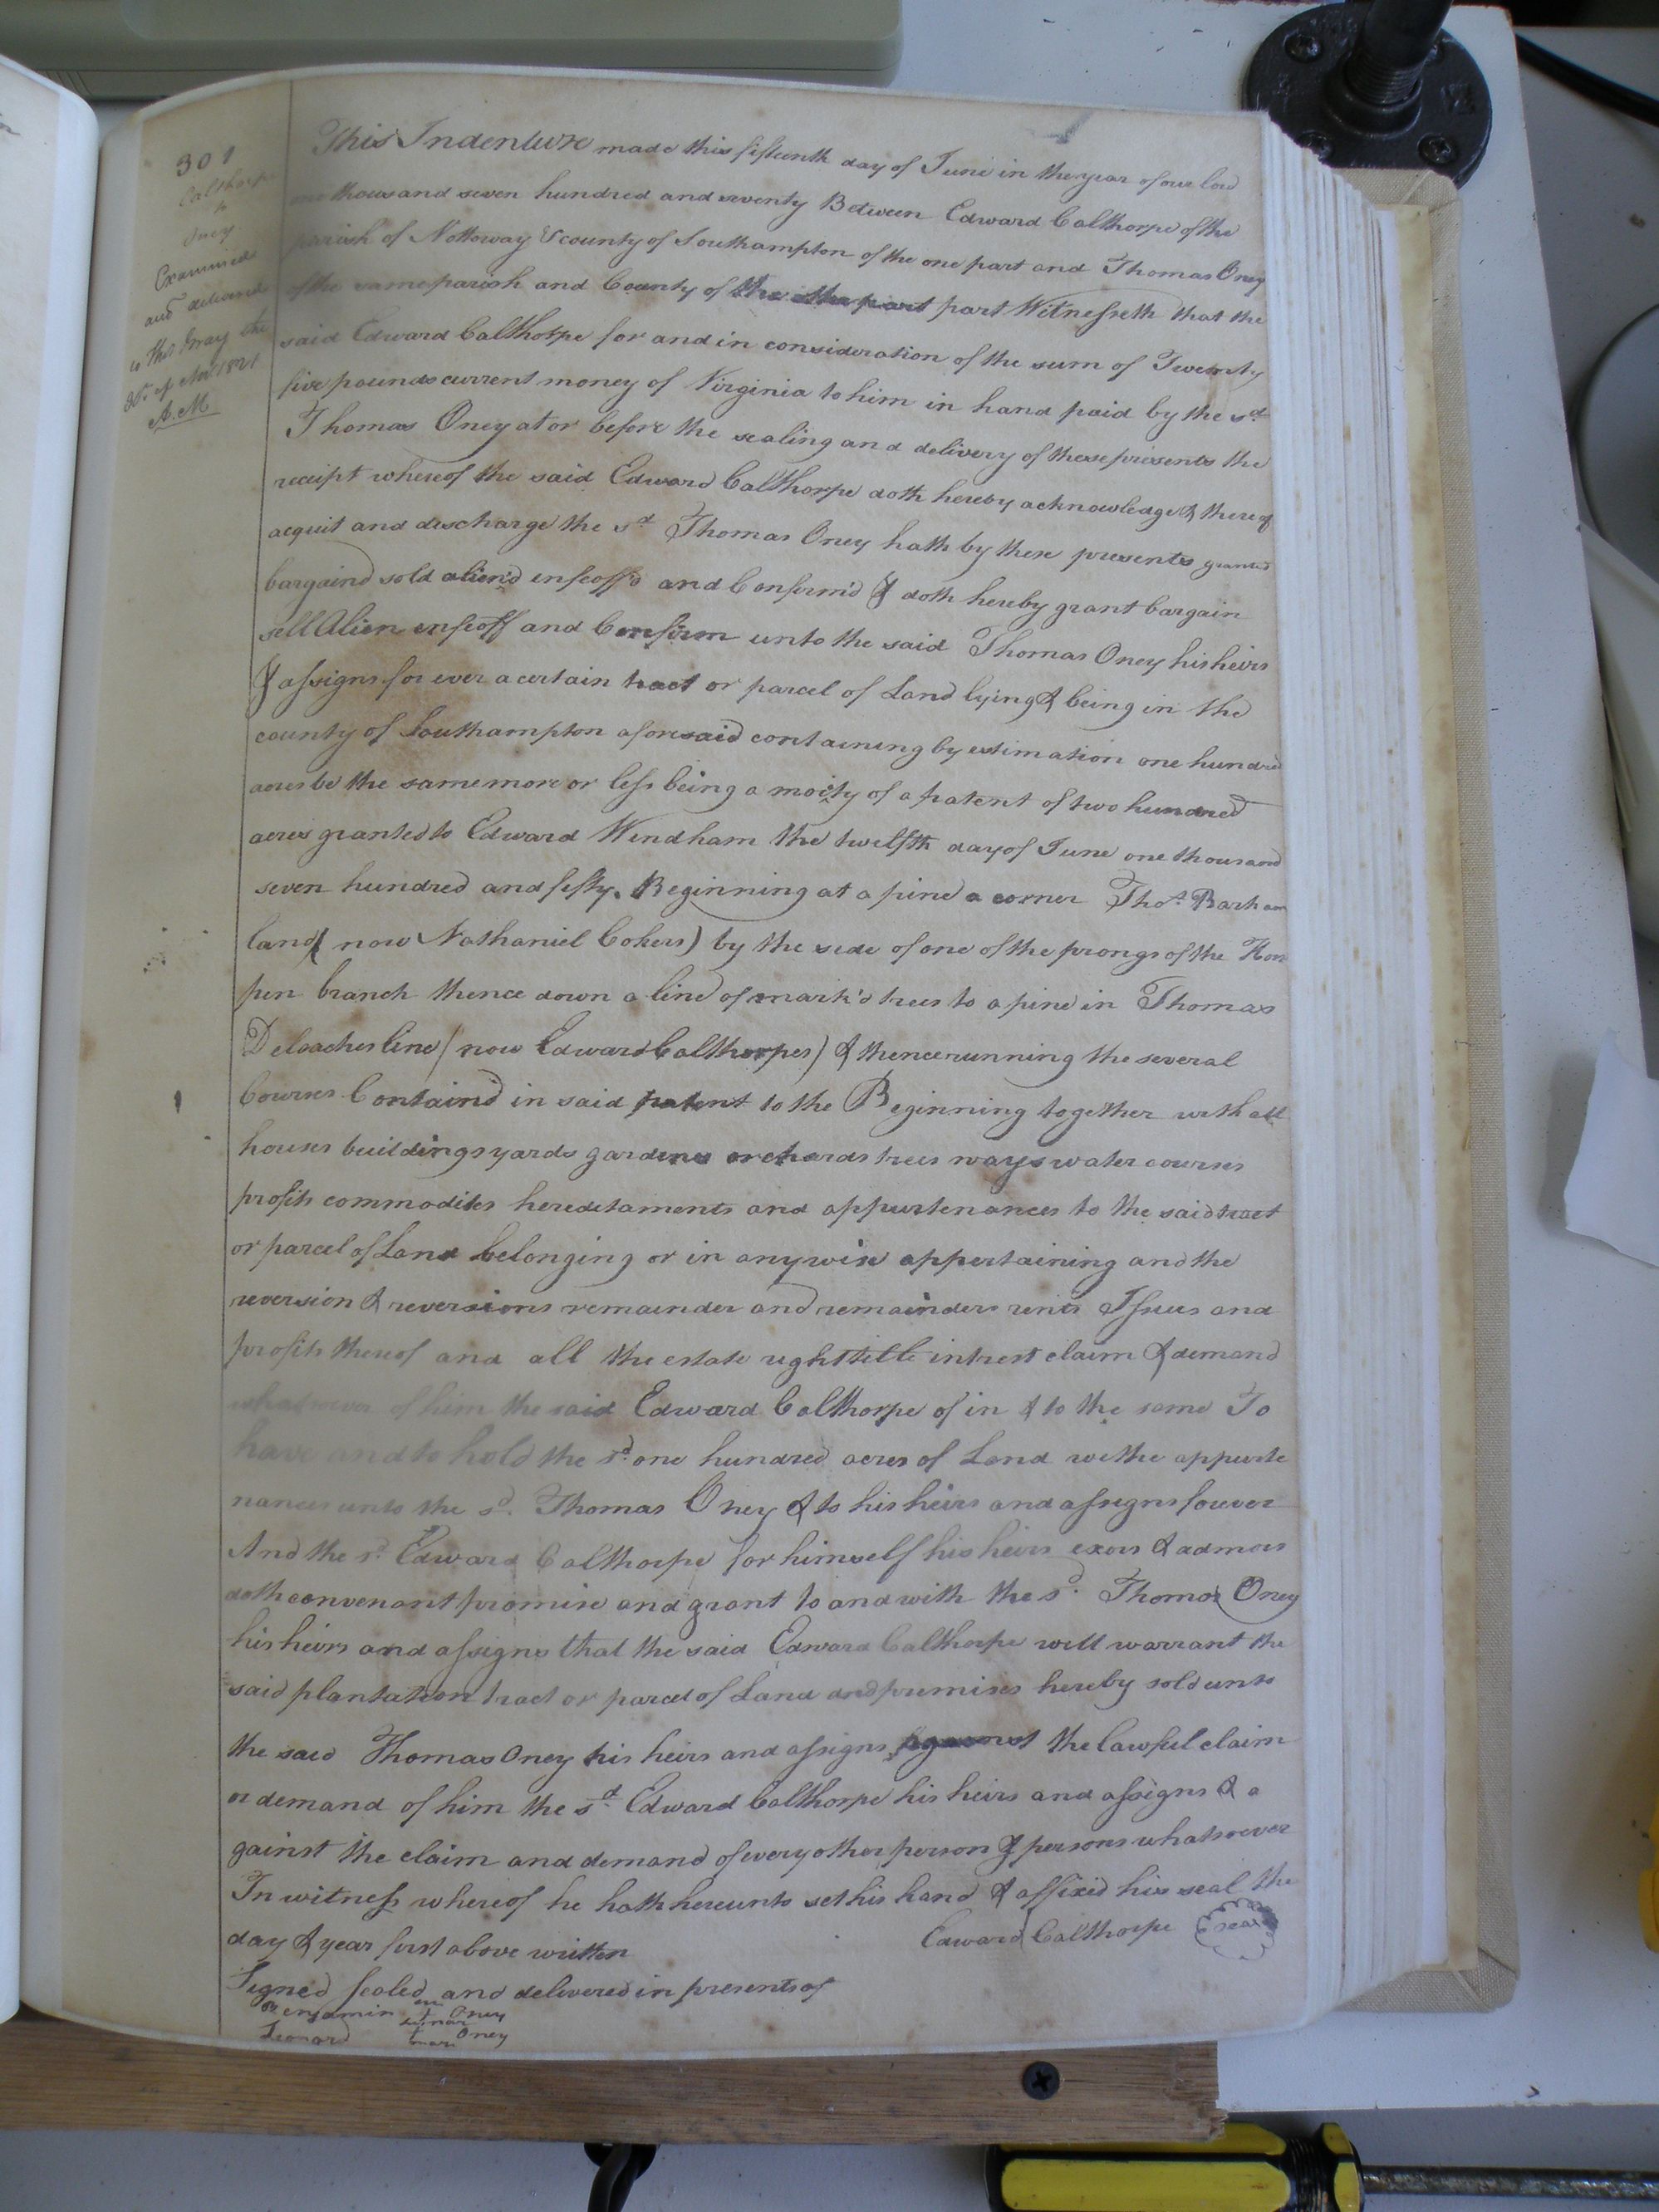 301
Calthorpe
to
Oney
Examined
and delivered
to Thos Gray the
of Nov 1821
A.M
This Indenture made this fifteenth day of June in the year of our lord
one thousand seven hundred and seventy Between Edward Calthorpe of the
parish of Nottoway & county of Southampton of the one part and Thomas Oney
of the same parish and County of the other part part Witnesseth that the
said Edward Calthorpe for and in consideration of the sum of Twenty
five pounds current money of Virginia to him in hand paid by the sd
Thomas Oney at or before the sealing and delivery of these presents the
receipt whereof the said Edward Calthorpe doth hereby acknowledge & thereof
acquit and discharge the sd Thomas Oney hath by these presents granted
bargaind sold alien'd enfeoff'd and Confirm'd & doth hereby grant bargain
sell Alien enfeoff and Confirm unto the said Thomas Oney his heirs
& assigns for ever a certain tract or parcel of Land lying & being in the
county of Southampton aforesaid containing by estimation one hundred
acres be the same more or less being a moity of a patent of two hundred
acres granted to Edward Windham the twelfth day of June one thousand
seven hundred and fifty. Beginning at a pine a corner Thos. Barham
land ( now Nathaniel Cokers ) by the side of one of the prongs of the
pen branch thence down a line of mark'd trees to a pine in Thomas
Deloaches line ( now Edward Calthorpes ) & thence running the several
Courses Containd in said patent to the Beginning together with all
houses buildings yards gardens orchards trees ways water courses
profits commodites hereditaments and appurtenances to the said tract
or parcel of Land belonging or in anywise appertaining and the
reversion & reversions remainder and remainders rents Issues and
profits thereof and all the estate right title intrest claim & demand
whatsoever of him the said Edward Calthorpe of in & to the same To
have and to hold the sd. one hundred acres of Land withe appurte
nances unto the sd. Thomas Oney & to his heirs and assigns forever
And the sd. Edward Calthorpe for himself his heirs exors & admors
doth convenant promise and grant to and with the sd. Thomas Oney
his heirs and assigns that the said Edward Calthorpe will warrant the
said plantation tract or parcel of Land and premises hereby sold unto
the said Thomas Oney his heirs and assigns against the lawful claim
or demand of him the sd. Edward Calthorpe his heirs and assigns & a
gainst the claim and demand of every other person & persons whatsoever
In witness whereof he hath hereunto set his hand & affixed his seal the
day & year first above written Edward Calthorpe Seal
Signed sealed and delivered in presents of
Benjamin Oney
Leonard Oney